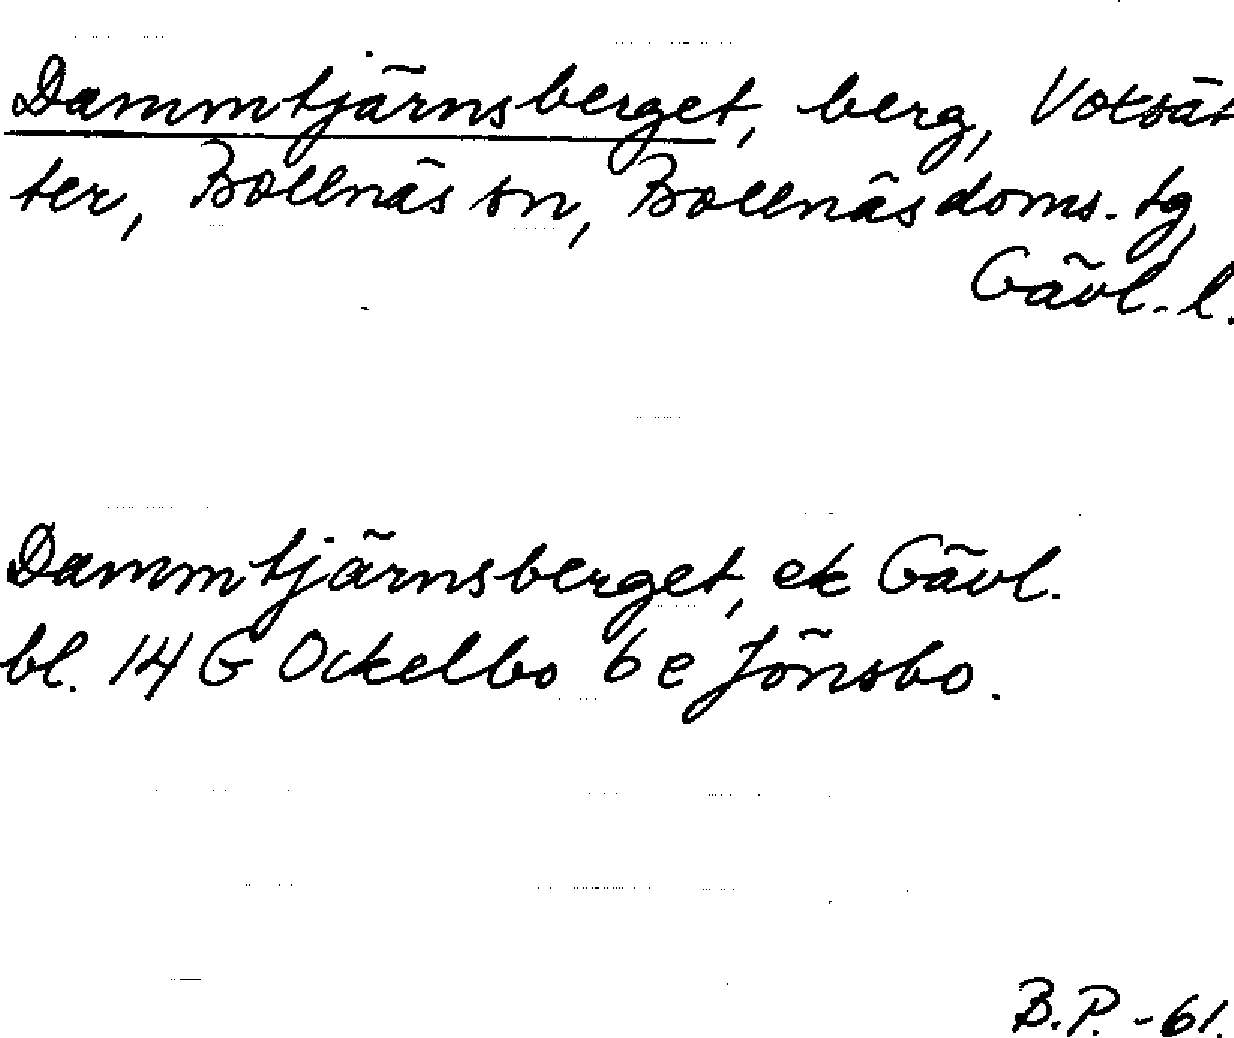 Dammtjärnsberget, berg, Votsät
ter, Bollnäs sn, Bollnäs doms. tg,
Gävl. l.
Dammtjärnsberget, ek Gävl.
bl. 14 G Ockelbo 6 e Jönsbo.
B.P. -61.